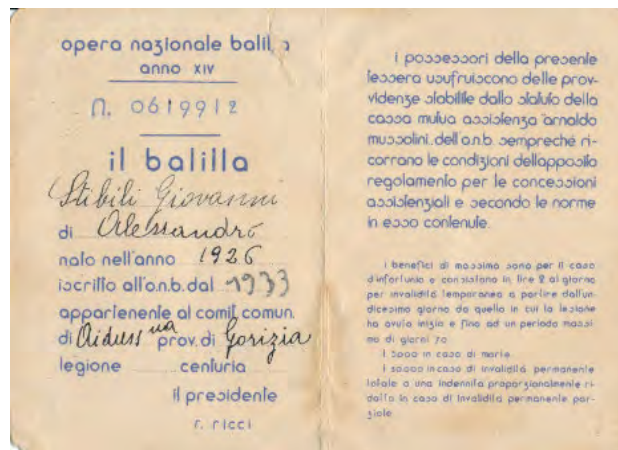 opera nazionale balilla
anno XIV
n. 0619912
il balilla
Stibili Giovanni
di Alessandro
nato nell'anno 1926
iscritto all'o.n.b. dal 1933
appartenente al comit. comun.
di Aidussina prov. di Gorizia
legione centuria
il presidente
r. ricci
i possessori della presente
tessera usufruiscono delle prov-
videnze stabilite dallo statuto della
cassa mutua assistenza arnaldo
mussolini dell'o.n.b. sempreché ri-
corrano le condizioni dell'apposito
regolamento per le concessioni
assistenziali e secondo le norme
in esso contenute.
i benefici di massima sono per il caso
d'infortunio e consistono in lire 2 al giorno
per invalidità temporanea a partire dall'un-
dicesimo giorno da quello in cui la lesione
ha avuto inizio e fino ad un periodo massi-
mo di giorni 70
l. 5000 in caso di morte
l. 10000 in caso di invalidità permanente
totale o una indennità proporzionalmente ri-
dotta in caso di invalidità permanente par-
ziale